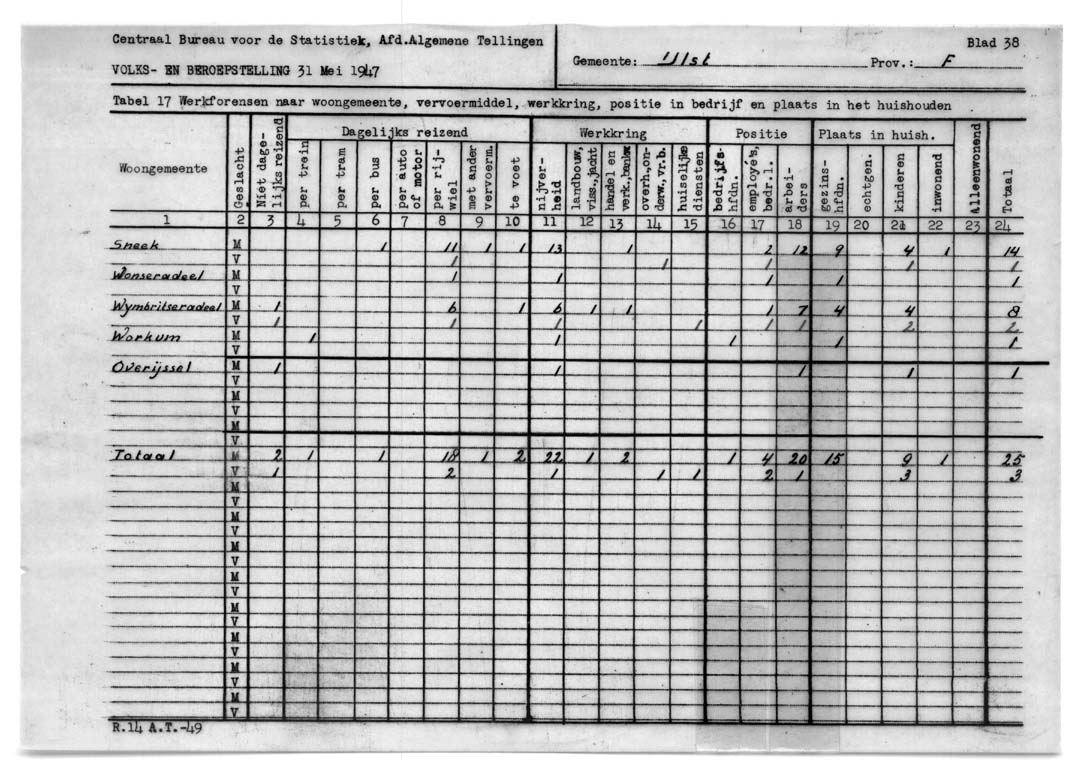 Centraal Bureau voor de Statistiek, Afd.Algemene Tellingen
VOLKS- EN BEROEPSTELLING 31 Mei 1947
Gemeente: IJlst Prov.: F
Blad 38
Tabel 17 Werkforensen naar woongemeente, vervoermiddel, werkkring, positie in bedrijf en plaats in het huishouden
Woongemeente Geslacht Niet dage-lijks reizend Dagelijks reizend Werkkring Positie Plaats in huish. Alleenwonend Totaal
per trein per tram per bus per auto of motor per rij-wiel met ander vervoerm. te voet nijver-heid landbouw, viss.,jacht handel en verk. overh.,on-derw.,vr.b. huiselijke diensten bedrijfs-hfdn. employé's, bedr.l. arbei-ders gezins-hfdn. echtgen. kinderen inwonend
1 2 3 4 5 6 7 8 9 10 11 12 13 14 15 16 17 18 19 20 21 22 23 24
Sneek M 1 11 1 1 13 1 2 12 9 4 1 14
V 1 1 1 1 1
Wonseradeel M 1 1 1 1 1
V
Wymbritseradeel M 1 6 1 6 1 1 1 7 4 4 8
V 1 1 1 1 1 1 2 2
Workum M 1 1 1 1 1
V
Overijssel M 1 1 1 1 1
V
M
V
M
V
Totaal M 2 1 1 18 1 2 22 1 2 1 4 20 15 9 1 25
V 1 2 1 1 1 2 1 3 3
M
V
M
V
M
V
M
V
M
V
M
V
M
V
M
V
R.14 A.T.-49